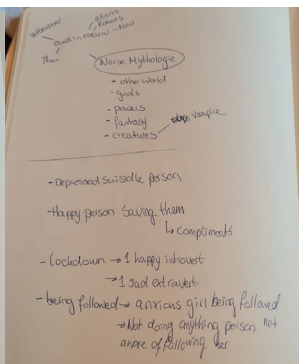 aliens
Robots
Now
Thor
Norse Mythologie
- other world
- gods
- powers
- fantasy
- creatures → vampire
- Depressed person
- Happy person saving them
↳ Compliments
- lockdown → 1 happy introvert
→ 1 sad extravert
- being followed → anxious girl being followed
→ Not doing anything person not
aware of following her